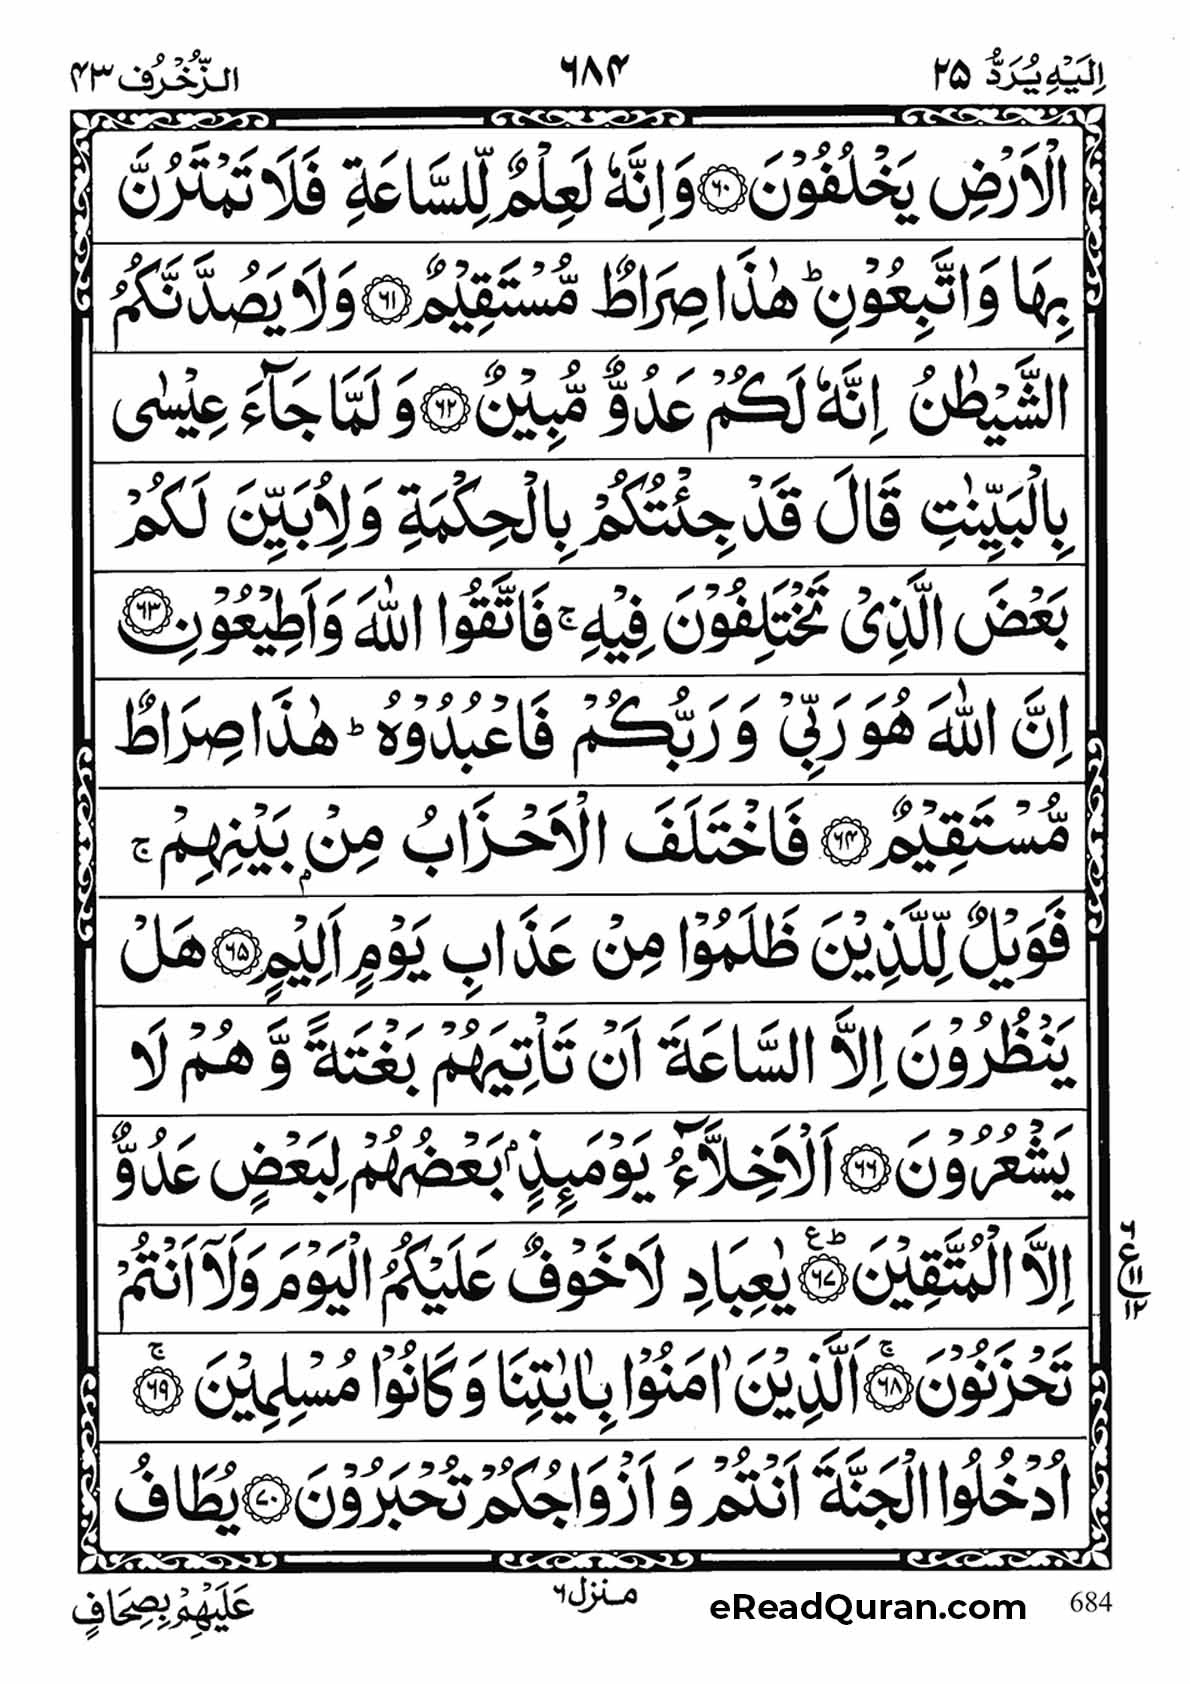 اِلَيْهِ يُرَدُّ ٢٥ ٦٨۴ الزُّخْرُف ۴٣
الْاَرْضِ يَخْلُفُوْنَ ﴿٦٠﴾ وَاِنَّهٗ لَعِلْمٌ لِّلسَّاعَةِ فَلَا تَمْتَرُنَّ
بِهَا وَاتَّبِعُوْنِ ؕ هٰذَا صِرَاطٌ مُّسْتَقِيْمٌ ﴿٦١﴾ وَلَا يَصُدَّنَّكُمُ
الشَّيْطٰنُ اِنَّهٗ لَكُمْ عَدُوٌّ مُّبِيْنٌ ﴿٦٢﴾ وَلَمَّا جَآءَ عِيْسٰى
بِالْبَيِّنٰتِ قَالَ قَدْ جِئْتُكُمْ بِالْحِكْمَةِ وَلِاُبَيِّنَ لَكُمْ
بَعْضَ الَّذِىْ تَخْتَلِفُوْنَ فِيْهِ ۚ فَاتَّقُوا اللّٰهَ وَاَطِيْعُوْنِ ﴿٦٣﴾
اِنَّ اللّٰهَ هُوَ رَبِّىْ وَرَبُّكُمْ فَاعْبُدُوْهُ ؕ هٰذَا صِرَاطٌ
مُّسْتَقِيْمٌ ﴿٦۴﴾ فَاخْتَلَفَ الْاَحْزَابُ مِنْۢ بَيْنِهِمْ ۚ
فَوَيْلٌ لِّلَّذِيْنَ ظَلَمُوْا مِنْ عَذَابِ يَوْمٍ اَلِيْمٍ ﴿٦٥﴾ هَلْ
يَنْظُرُوْنَ اِلَّا السَّاعَةَ اَنْ تَاْتِيَهُمْ بَغْتَةً وَّهُمْ لَا
يَشْعُرُوْنَ ﴿٦٦﴾ اَلْاَخِلَّآءُ يَوْمَئِذٍۢ بَعْضُهُمْ لِبَعْضٍ عَدُوٌّ
اِلَّا الْمُتَّقِيْنَ ؕ ع ﴿٦٧﴾ يٰعِبَادِ لَا خَوْفٌ عَلَيْكُمُ الْيَوْمَ وَلَاۤ اَنْتُمْ
٦ ع ١١ ١٢
تَحْزَنُوْنَ ۚ ﴿٦٨﴾ اَلَّذِيْنَ اٰمَنُوْا بِاٰيٰتِنَا وَكَانُوْا مُسْلِمِيْنَ ۚ ﴿٦٩﴾
اُدْخُلُوا الْجَنَّةَ اَنْتُمْ وَاَزْوَاجُكُمْ تُحْبَرُوْنَ ﴿٧٠﴾ يُطَافُ
684 eReadQuran.com منزل ٦ عَلَيْهِمْ بِصِحَافٍ